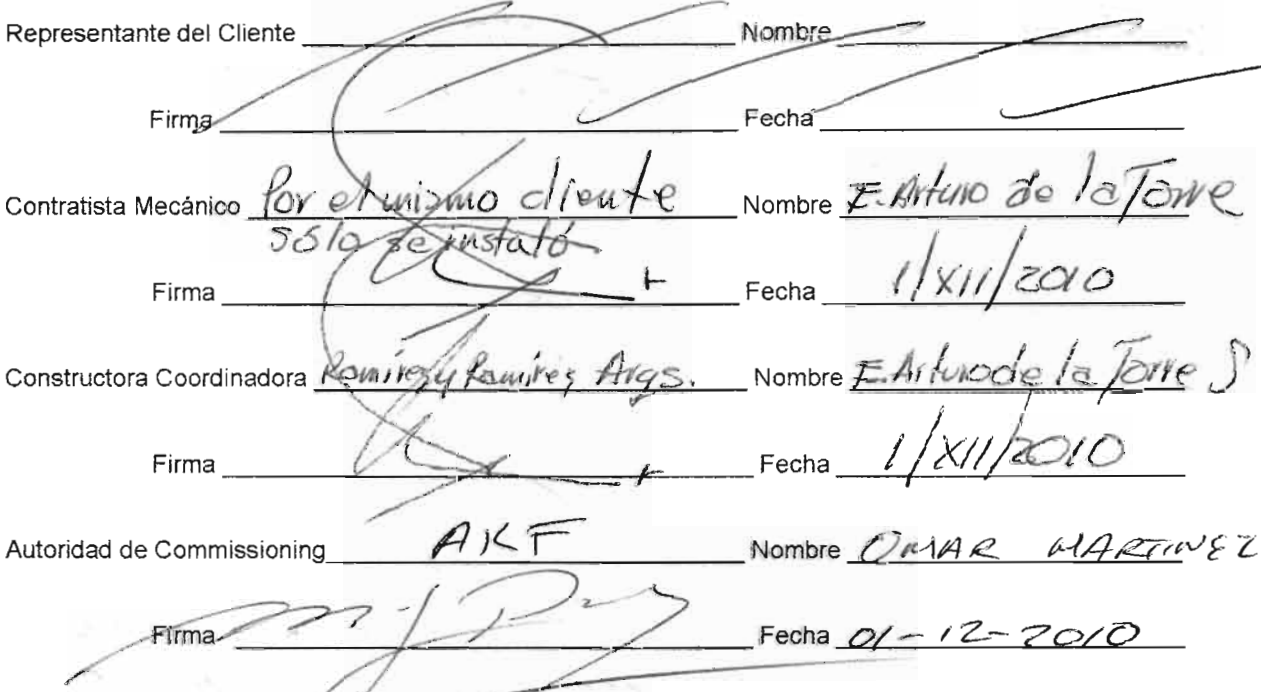 Representante del Cliente Nombre
Firma Fecha
Contratista Mecánico Por el mismo cliente Nombre E. Arturo de la Torre
sólo se instaló
Firma Fecha 1/XII/2010
Constructora Coordinadora Ramírez y Ramírez Arqs. Nombre E. Arturo de la Torre S
Firma Fecha 1/XII/2010
Autoridad de Commissioning AKF Nombre OMAR MARTINEZ
Firma Fecha 01-12-2010